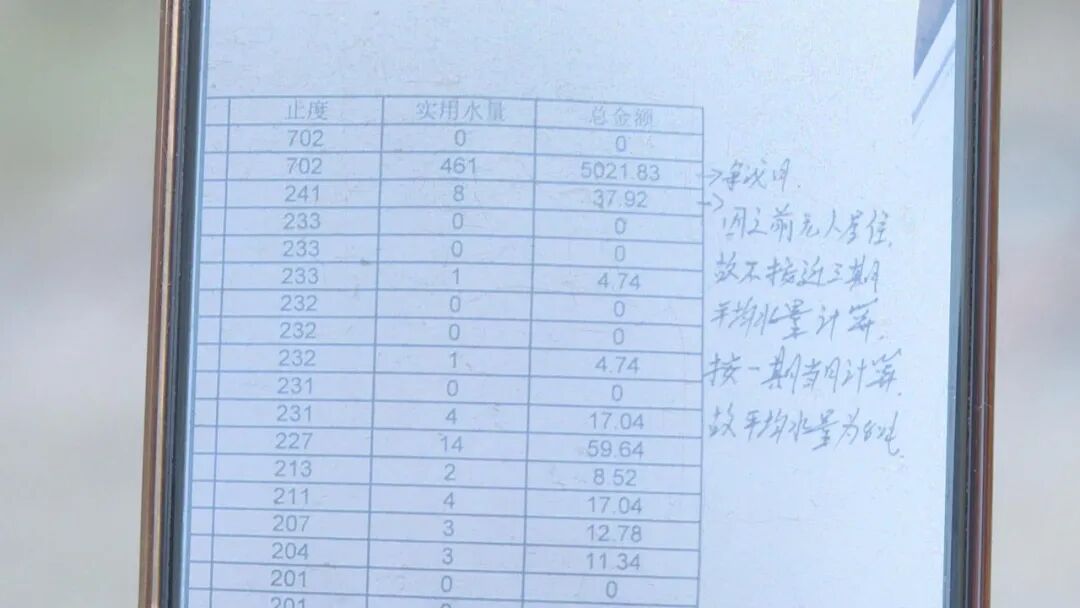 止度 实用水量 总金额
702 0 0
702 461 5021.83 →争议月.
241 8 37.92 →
233 0 0 因之前无人居住,
233 0 0
233 1 4.74 故不按近三期
232 0 0 平均水量计算,
232 0 0
232 1 4.74 按一期当月计算,
231 0 0
231 4 17.04 故平均水量为8吨.
227 14 59.64
213 2 8.52
211 4 17.04
207 3 12.78
204 3 11.34
201 0 0
201